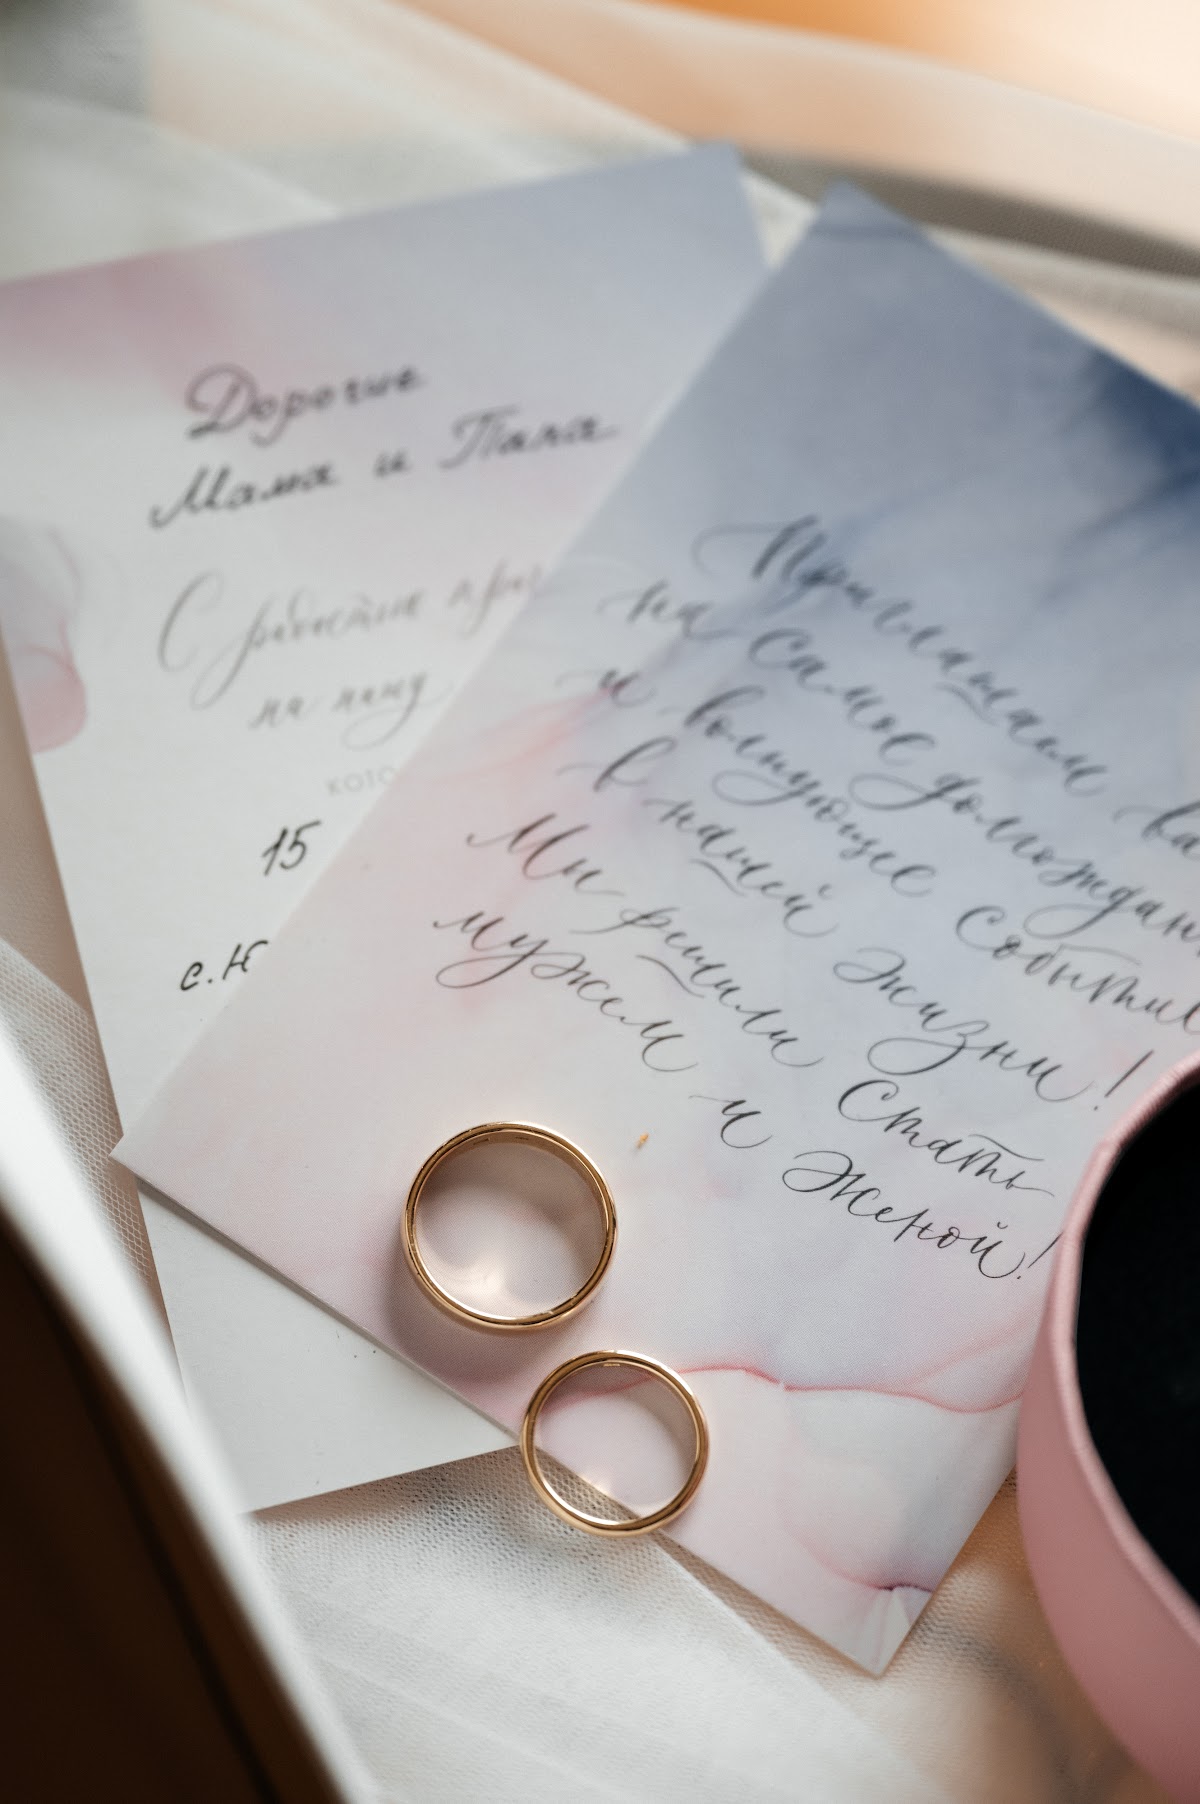 Дорогие
Мама и Папа
С радостью приг
на нашу
кото
15
с. Ю
Приглашаем ва
на самое долгождан
и волнующее событи
в нашей жизни!
Мы решили стать
мужем и женой!